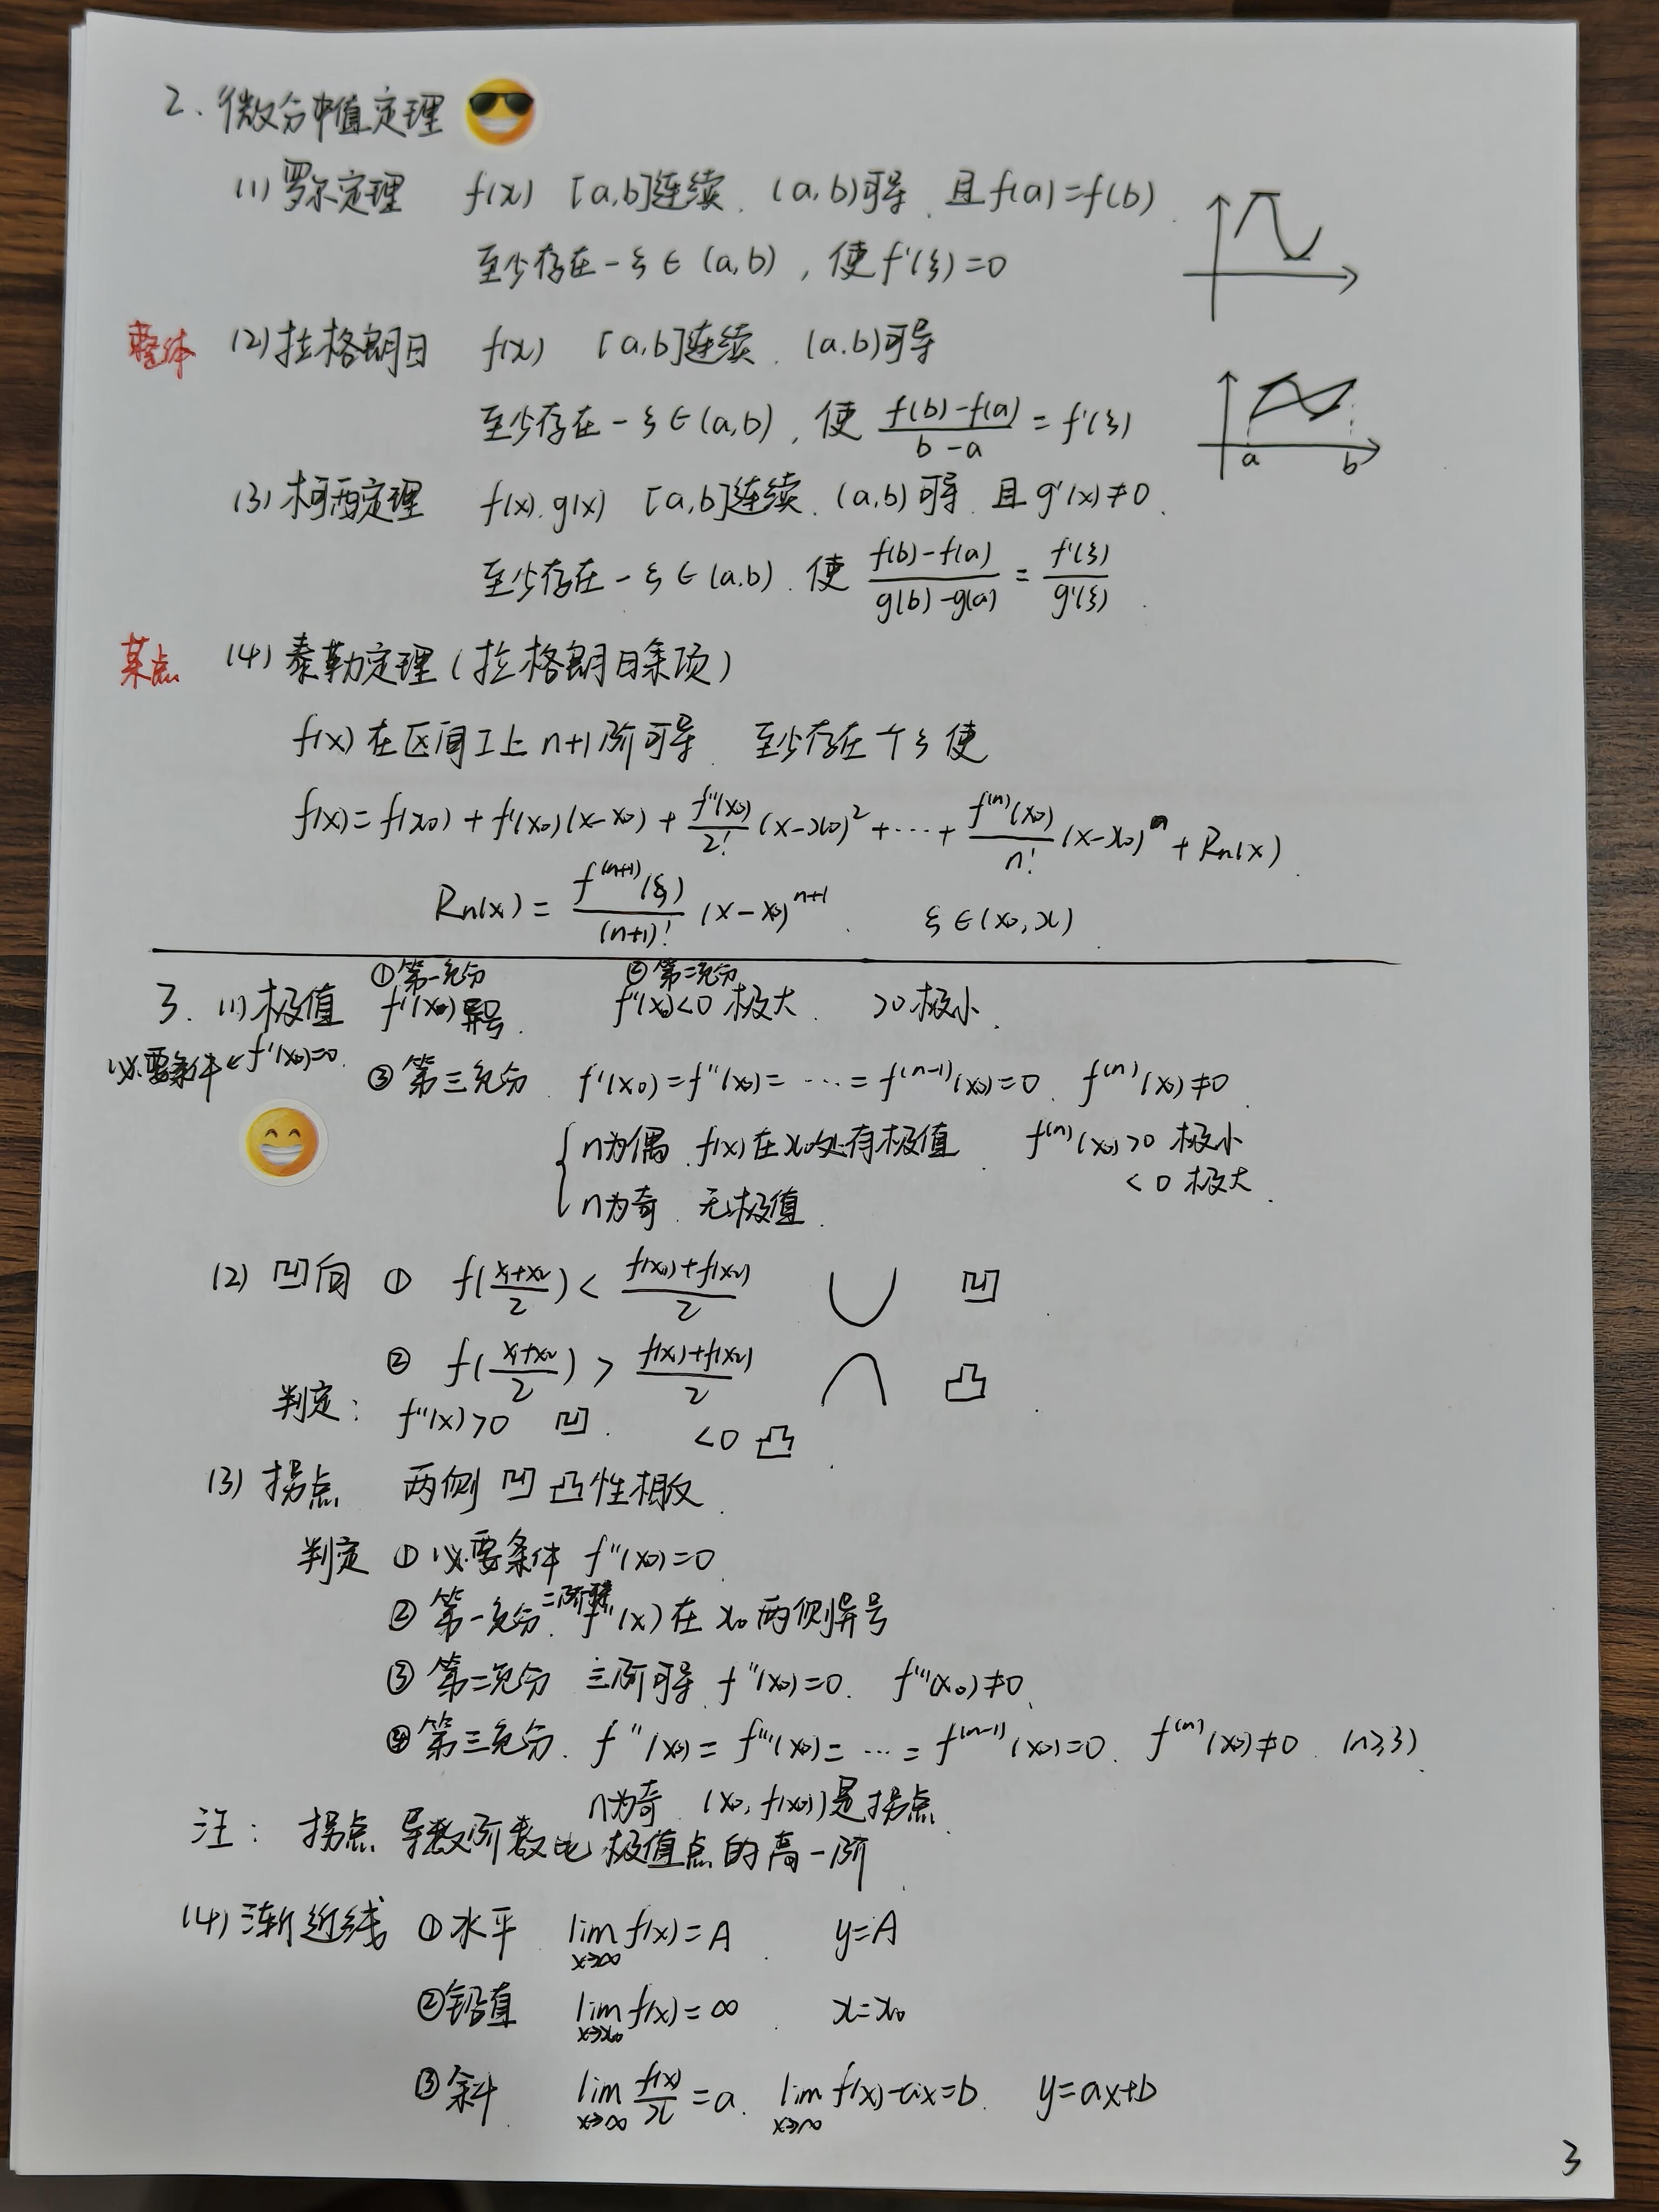 2. 微分中值定理
(1) 罗尔定理 f(x) [a,b]连续. (a,b)可导. 且f(a)=f(b).
至少存在一ξ∈(a,b), 使f'(ξ)=0
整体 (2) 拉格朗日 f(x) [a,b]连续. (a.b)可导
至少存在一ξ∈(a,b), 使 (f(b)-f(a))/(b-a) = f'(ξ)
a b
(3) 柯西定理 f(x).g(x) [a,b]连续. (a,b)可导. 且g'(x)≠0.
至少存在一ξ∈(a.b). 使 (f(b)-f(a))/(g(b)-g(a)) = f'(ξ)/g'(ξ).
某点 (4) 泰勒定理(拉格朗日余项)
f(x)在区间I上n+1阶可导. 至少存在个ξ使
f(x)=f(x₀)+f'(x₀)(x-x₀)+f''(x₀)/2!(x-x₀)²+⋯+f⁽ⁿ⁾(x₀)/n!(x-x₀)ⁿ+Rn(x).
Rn(x)=f⁽ⁿ⁺¹⁾(ξ)/(n+1)!(x-x₀)ⁿ⁺¹. ξ∈(x₀,x).
①第一充分 ②第二充分
3. (1)极值 f'(x₀)异号. f''(x₀)<0 极大. >0 极小.
必要条件 f'(x₀)=0.
③第三充分. f'(x₀)=f''(x₀)=⋯=f⁽ⁿ⁻¹⁾(x₀)=0. f⁽ⁿ⁾(x₀)≠0.
n为偶. f(x)在x₀处有极值. f⁽ⁿ⁾(x₀)>0 极小
<0 极大.
n为奇. 无极值.
(2) 凹向 ① f((x₁+x₂)/2) < (f(x₁)+f(x₂))/2 凹.
② f((x₁+x₂)/2) > (f(x₁)+f(x₂))/2 凸.
判定: f''(x)>0 凹. <0 凸.
(3) 拐点 两侧凹凸性相反.
判定 ①必要条件 f''(x₀)=0.
二阶可导
②第一充分. f''(x)在x₀两侧异号
③第二充分 三阶可导 f''(x₀)=0. f'''(x₀)≠0.
④第三充分. f''(x₀)=f'''(x₀)=⋯=f⁽ⁿ⁻¹⁾(x₀)=0. f⁽ⁿ⁾(x₀)≠0. (n≥3).
n为奇. (x₀,f(x₀))是拐点.
注: 拐点 导数阶数比极值点的高一阶.
(4) 渐近线 ①水平 lim x→∞ f(x)=A. y=A
②铅直 lim x→x₀ f(x)=∞. x=x₀
③斜. lim x→∞ f(x)/x=a. lim x→∞ f(x)-ax=b. y=ax+b
3